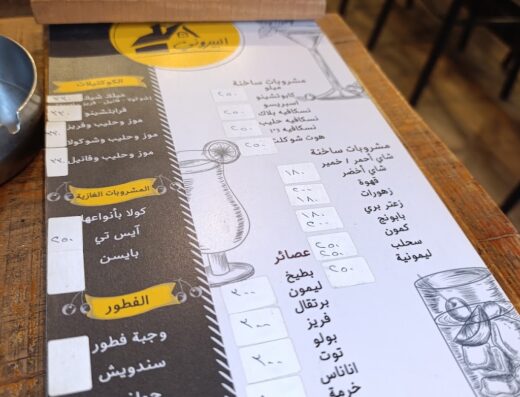 مشروبات ساخنة
ميلو
كابوتشينو
٢٥٠
اسبريسو
نسكافيه بلاك
نسكافيه حليب
٢٥٠
نسكافيه ٣*١
هوت شوكلت
٢٥٠
مشروبات ساخنة
شاي أحمر / خمير
شاي أخضر
١٨٠
قهوة
٢٠٠
زهورات
١٨٠
زعتر بري
٢٠٠
بابونج
كمون
٢٥٠
سحلب
٢٥٠
ليمونية
٢٥٠
عصائر
بطيخ
ليمون
٢٠٠
برتقال
فريز
٢٠٠
بولو
توت
٢٠٠
اناناس
خرمة
الكوكتيلات
ميلك شيك
فرابتشينو
موز وحليب وفريز
موز وحليب وشوكولا
موز وحليب وفانيل
المشروبات الغازية
كولا بأنواعها
آيس تي
٢٥٠
بايسن
الفطور
وجبة فطور
سندويش